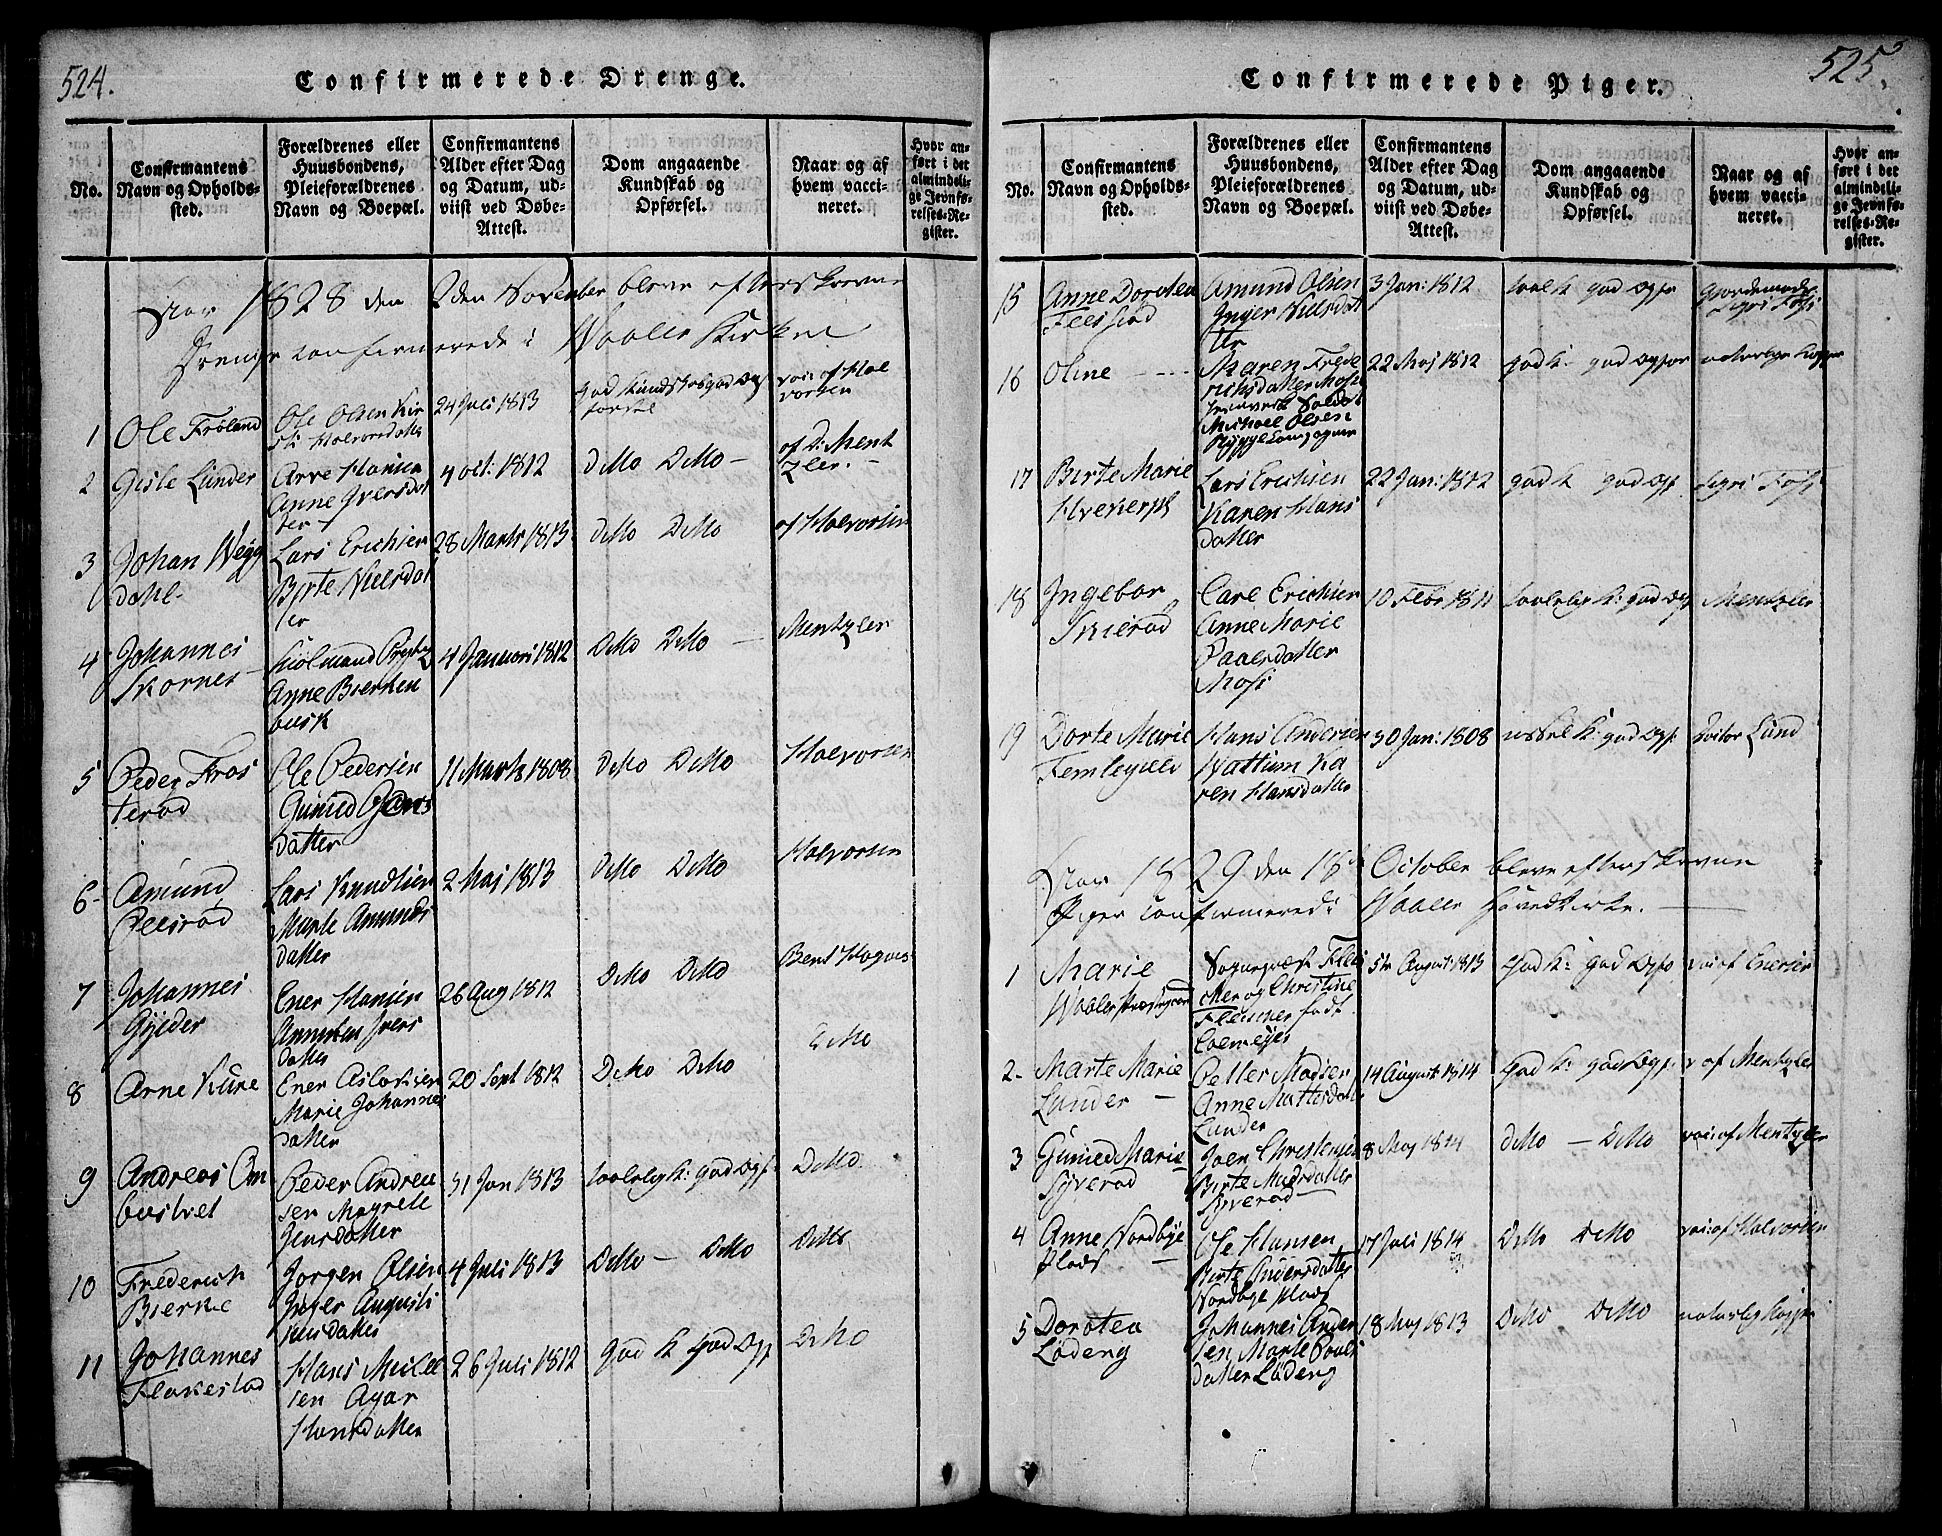 524.
Confirmerede Drenge.
No.
Confirmantens
Navn og Opholds-
sted.
Forældrenes eller
Huusbondens,
Pleieforældrenes
Navn og Boepæl.
Confirmantens
Alder efter Dag
og Datum, ud-
viist ved Døbe-
Attest.
Dom angaaende
Kundskab og
Opførsel.
Naar og af
hvem vacci-
neret.
Hvor an-
ført i det
almindeli-
ge Jevnfø-
relses-Re-
gister.
Aar 1828 den 2den November bleve efterskrevne
Drenge confirmerede i Waaler Kirke
1
Ole Frøland
Ole Olsen Kir
sti Halvorsdatter
24 Juli 1813
god Kundskab god Op
førsel
vac: af Hal
vorsen
2
Gisle Lunder
Arve Hansen
Anne Iversdat
ter
4 Oct: 1812
Ditto Ditto
af D: Ment
zler.
3
Johan Wegg
dahl
Lars Erichsen
Birte Nielsdat
ter
28 Marts 1813
Ditto Ditto
af Halvorsen
4
Johannes
Skornes
Anne Bierken
busk
4 Januari 1812
Ditto Ditto
Mentzler
5
Peder Fros
terød
Ole Pedersen
Gunild
datter
11 Marts 1808
Ditto Ditto
Halvorsen
6
Amund
Peesrød
Lars Knudsen
Marte Amunds
datter
2 Maj 1813
Ditto Ditto
Halvorsen
7
Johannes
Gjeder
Ener Hansen
Ivers
datter
26 Aug 1812
Ditto Ditto
Bent
8
Arne Kure
Ener Aslaksen
Marie Johannes
datter
20 Sept 1812
Ditto Ditto
Ditto
9
Andreas Om
bustvet
Peder Andrea
sen Magrete
Jensdatter
31 Jan 1813
taalelig K: god Opf
Ditto
10
Frederich
Bierke
Jørgen Olsen
Inger Augusti
nusdatter
4 Juli 1813
Ditto Ditto
Ditto
11
Johannes
Flakestad
Hans Mickel
sen Agar
Hansdatter
26 Juli 1812
god K god Opf
Ditto
525.
Confirmerede Piger.
No.
Confirmantens
Navn og Opholds-
sted.
Forældrenes eller
Huusbondens,
Pleieforældrenes
Navn og Boepæl.
Confirmantens
Alder efter Dag
og Datum, ud-
viist ved Døbe-
Attest.
Dom angaaende
Kundskab og
Opførsel.
Naar og af
hvem vacci-
neret.
Hvor an-
ført i det
almindeli-
ge Jevnfø-
relses-Re-
gister.
15
Anne Dorotea
Amund Olsen
Inger Nielsdat
ter
3 Jan: 1812
god Opf
Jordemoder
Siri Foss
16
Oline
Maren Frede
richsdatter Moss
Soldat
Michael Olsen
Rygge Compagnie
22 Maj 1812
god K: god Opfør
naturlige Kopper
17
Birte Marie
Lars Erichsen
Karen Hans
datter
22 Jan: 1812
god K god Opf
Siri Foss
18
Ingebor
Skierød
Carl Erichsen
Anne Marie
Paalsdatter
Moss
10 Febr 1811
taalelig K: god Opf
Mentzler
19
Dorte Marie
Hans Andersen
Wattum Ka
ren Hansdatter
30 Jan: 1808
K: god Opf
Doctor Lund
Aar 1829 den 18de October bleve efterskrevne
Piger confirmerede i Waaler Hovedkirke.
1
Marie
Waaler Præstegaard
Sognepræst Fleis
cher og Christine
Fleischer født
5te August 1813
God K: god Opfø
vac: af Enersen
2
Marte Marie
Lunder
Petter Madsen
Anne Mattisdatt
Lunder
14 August 1814
God K: god Opf.
v af Mentzler
3
Gunild Marie
Syverød
Joen Christensen
Birte Madsdatter
Syverød
8 Maj 1814
Ditto Ditto
vac: af Mentzler
4
Anne Nordbye
Plads
Ole Hansen
Birte Andersdatter
Nordbye Plads
17 Juli 1814
Ditto Ditto
vac: af Halvorsen
5
Dorotea
Lødeng
Johannes Ander
sen Marte Povels
datter Lødeng
18 Maj 1813
Ditto Ditto
naturlig Kopper